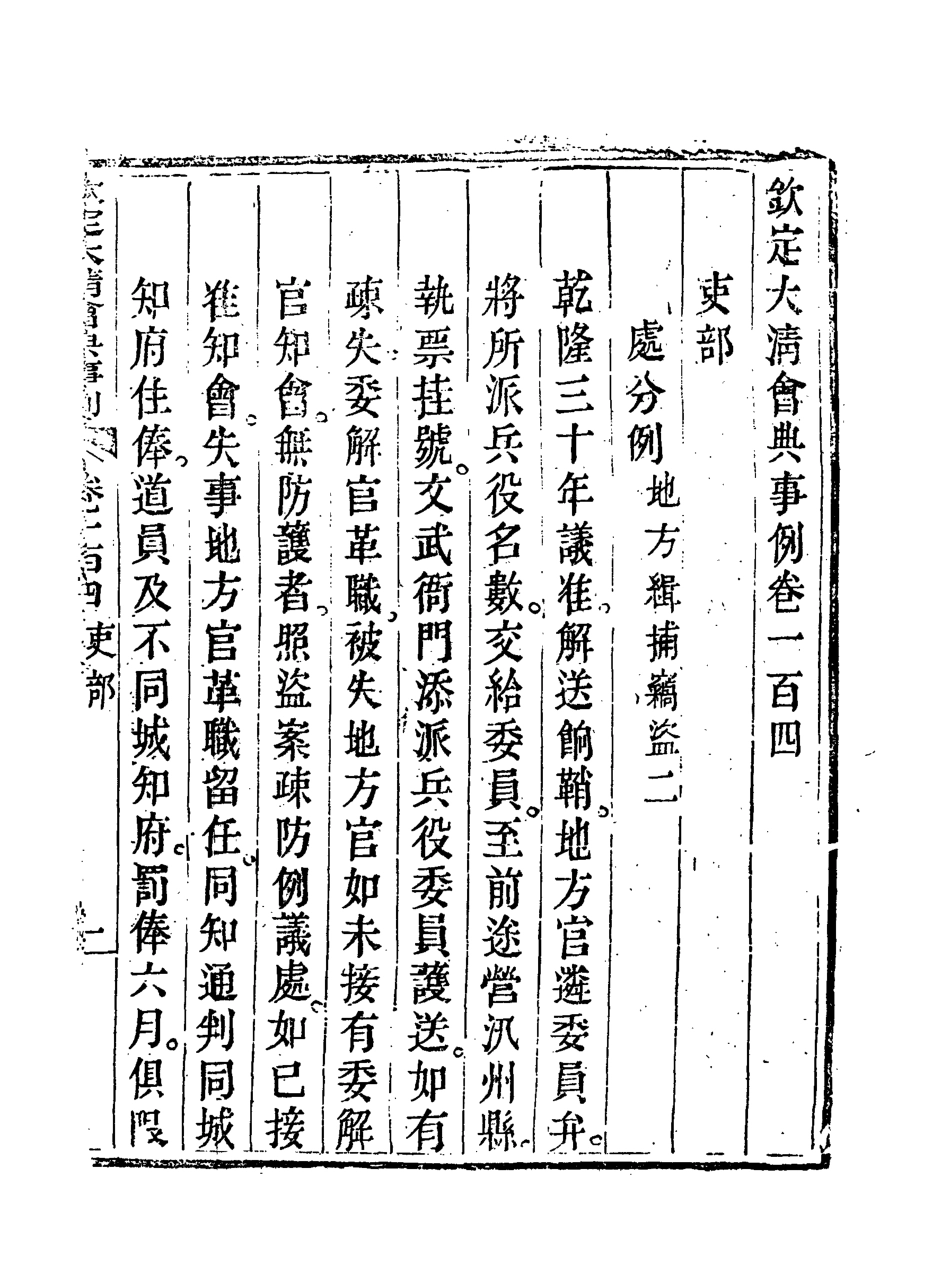 欽定大清會典事例卷一百四
吏部
處分例地方緝捕竊盜二
乾隆三十年議准。解送餉鞘。地方官遴委員弁。
將所派兵役名數。交給委員。至前途營汛州縣。
執票挂號。文武衙門添派兵役委員護送。如有
疎失委解官革職。被失地方官如未接有委解
官知會。無防護者。照盜案疎防例議處。如已接
准知會。失事地方官革職留任。同知通判同城
知府住俸。道員及不同城知府。罰俸六月。俱限
欽定大清會典事例 卷一百四 吏部 一